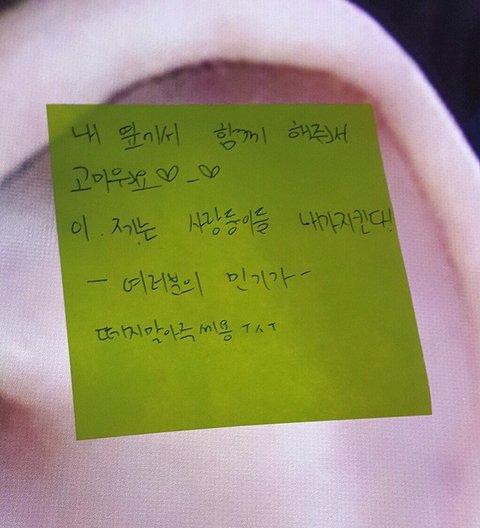 내 옆에서 함께 해줘서
고마워요♡_♡
사랑둥이들 내가지킨다!
- 여러분의 민기가-
떼지말아주세용 ㅜㅅㅜ